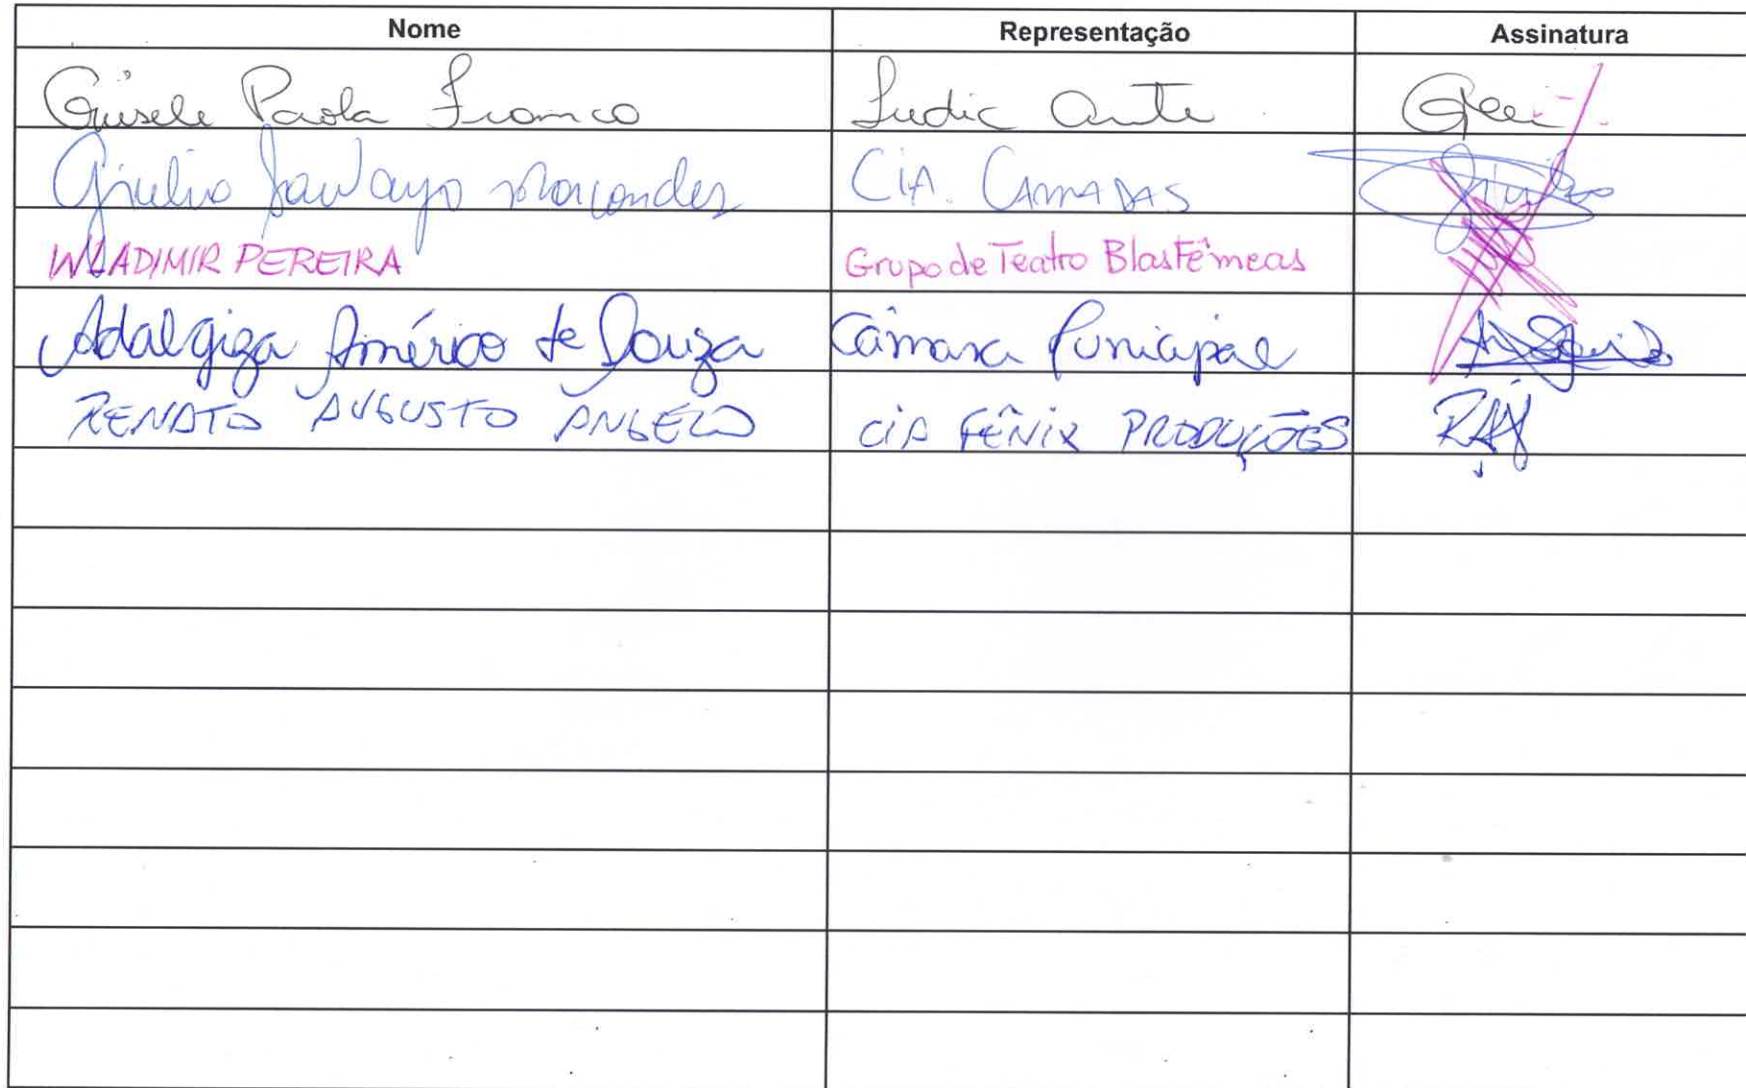 Nome Representação Assinatura
Gisele Paola Franco Ludic Arte
Giulio Marcondes CIA. CAMADAS
WLADIMIR PEREIRA Grupo de Teatro Blasfêmeas
Adalgiza Américo de Souza Câmara Municipal
RENATO AUGUSTO ANGELO CIA FÊNIX PRODUÇÕES